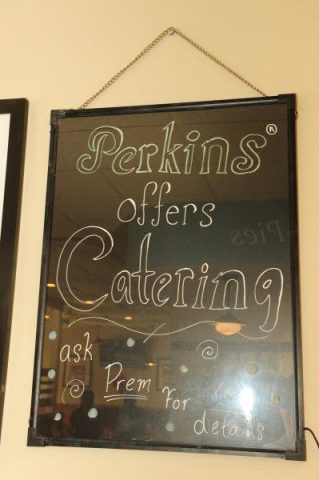 Perkins®
offers
Catering
ask
Prem
For
details
Pies